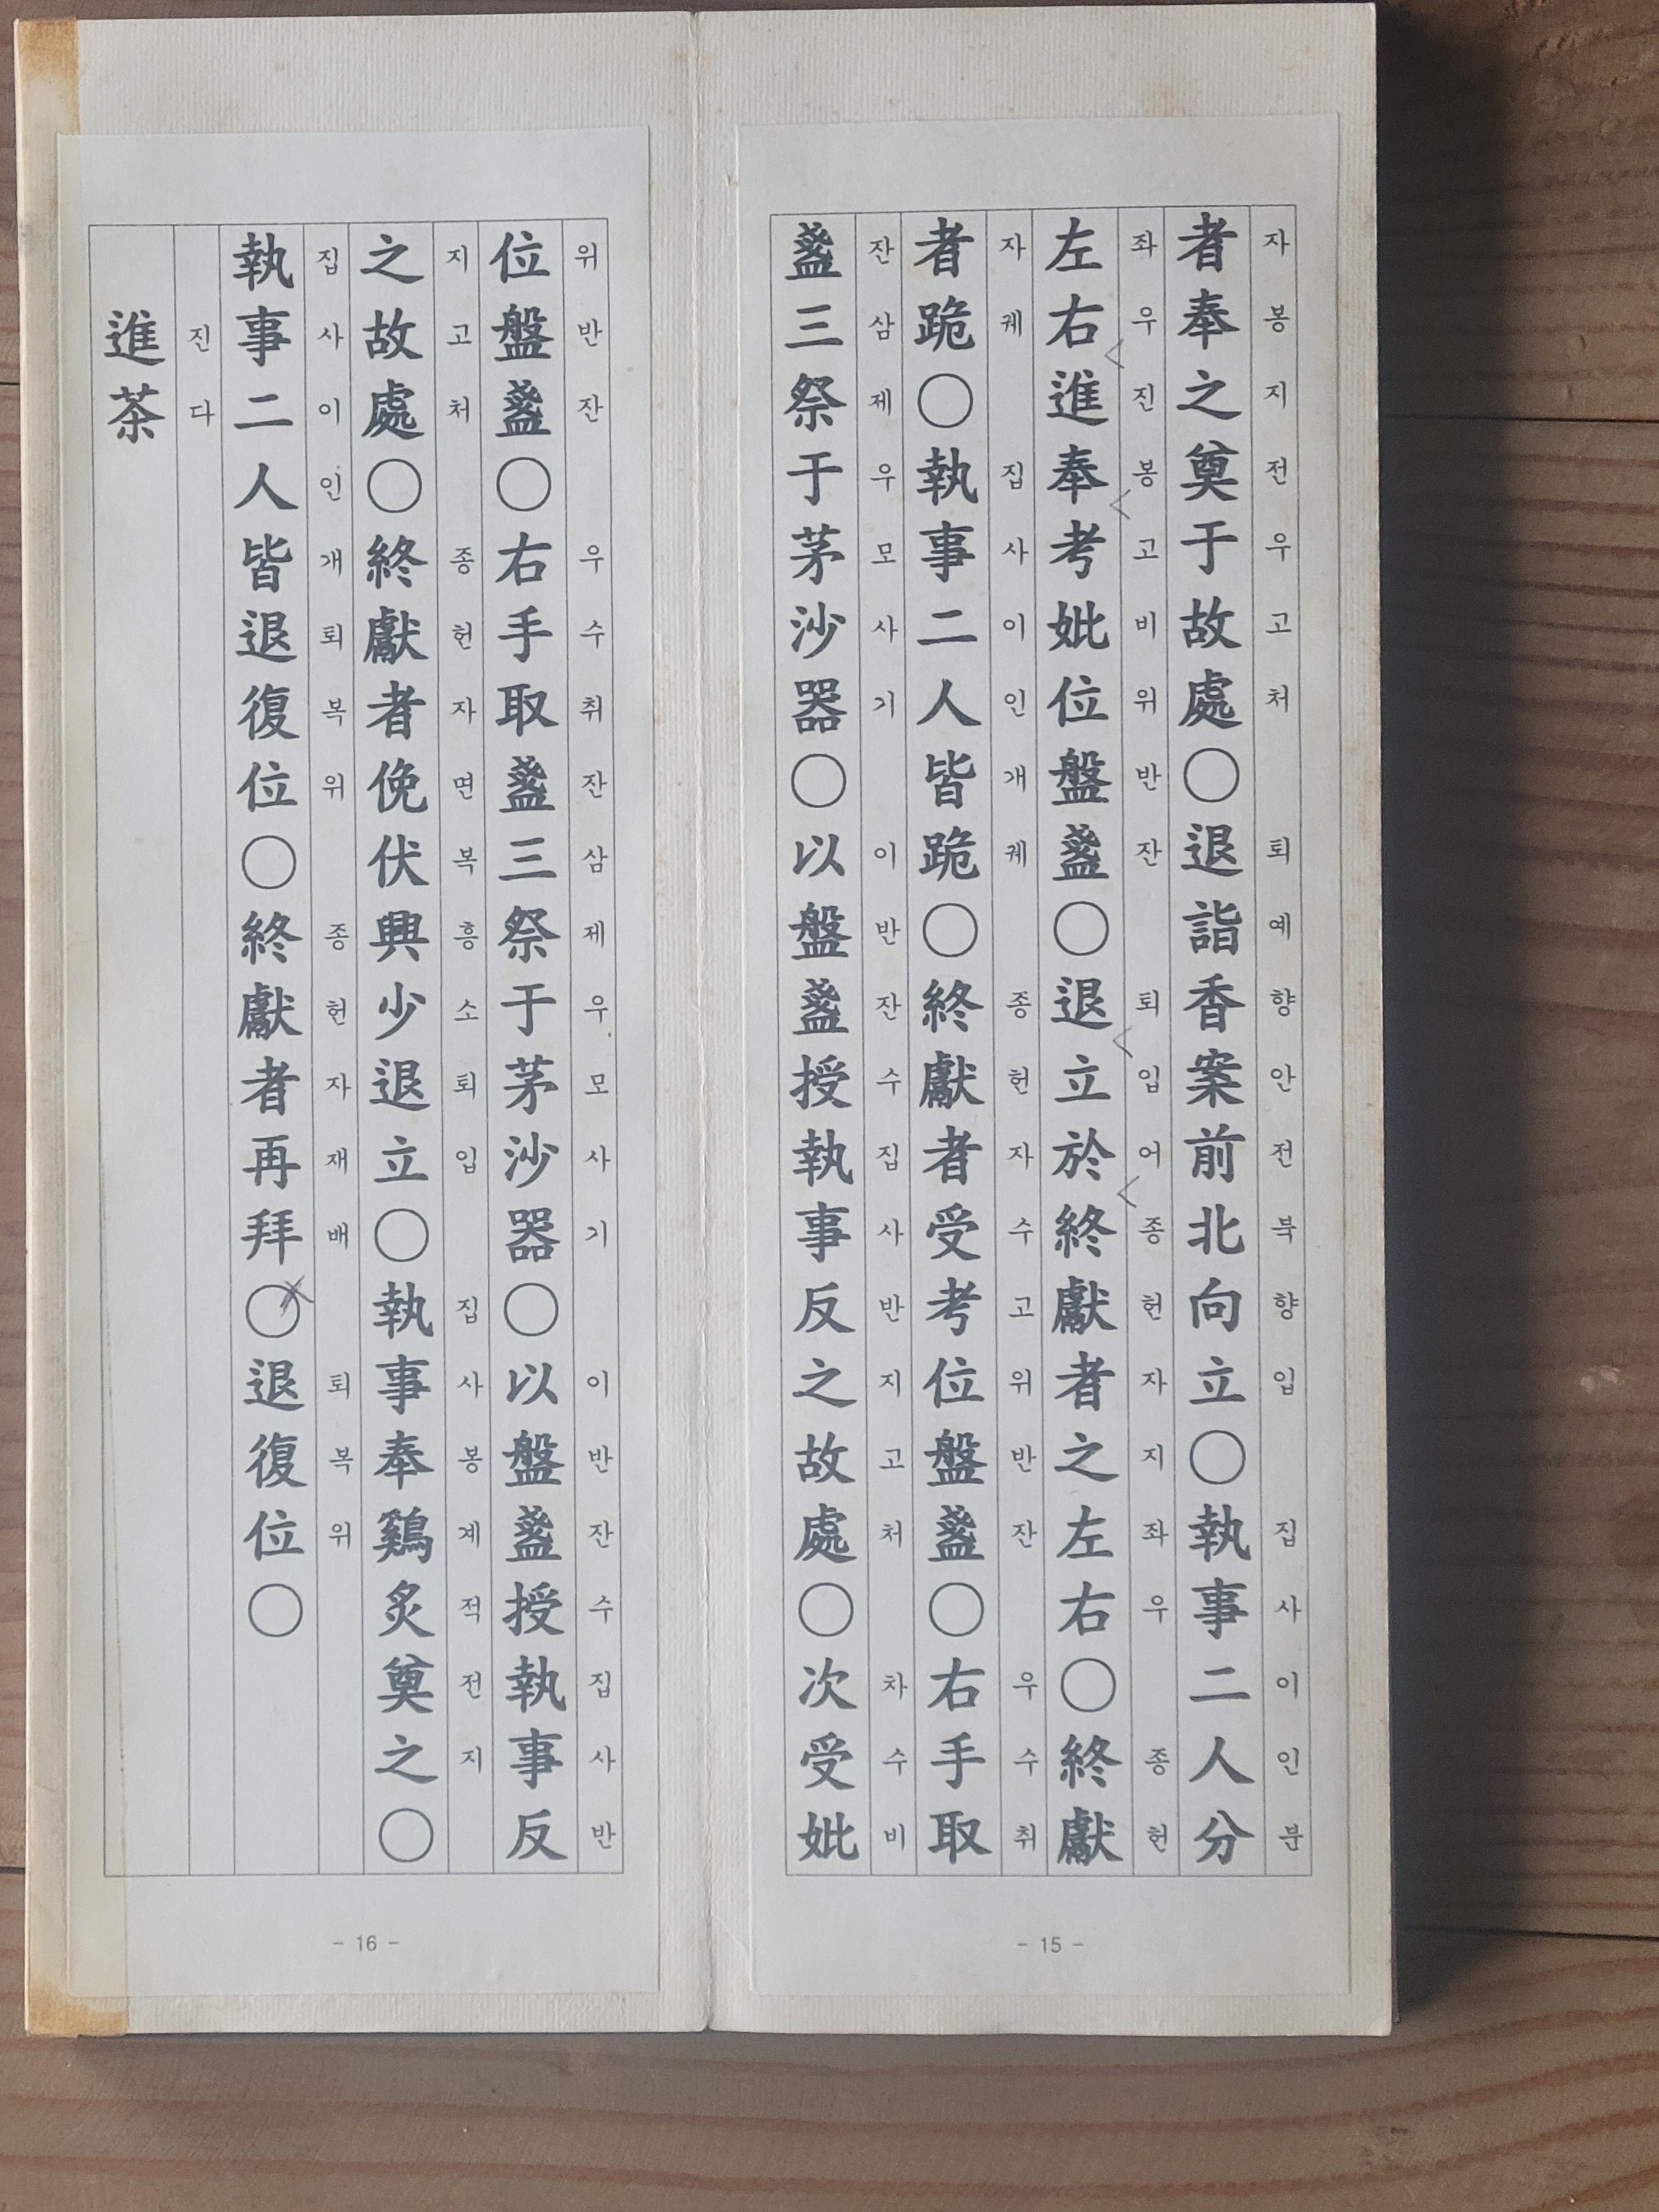 者奉之奠于故處○退詣香案前北向立○執事二人分
자봉지전우고처 퇴예향안전북향입 집사이인분
左右進奉考妣位盤盞○退立於終獻者之左右○終獻
좌우진봉고비위반잔 퇴입어종헌자지좌우 종헌
者跪○執事二人皆跪○終獻者受考位盤盞○右手取
자궤 집사이인개궤 종헌자수고위반잔 우수취
盞三祭于茅沙器○以盤盞授執事反之故處○次受妣
잔삼제우모사기 이반잔수집사반지고처 차수비
- 15 -
位盤盞○右手取盞三祭于茅沙器○以盤盞授執事反
위반잔 우수취잔삼제우모사기 이반잔수집사반
之故處○終獻者俛伏興少退立○執事奉鷄炙奠之○
지고처 종헌자면복흥소퇴입 집사봉계적전지
執事二人皆退復位○終獻者再拜○退復位○
집사이인개퇴복위 종헌자재배 퇴복위
進茶
진다
- 16 -